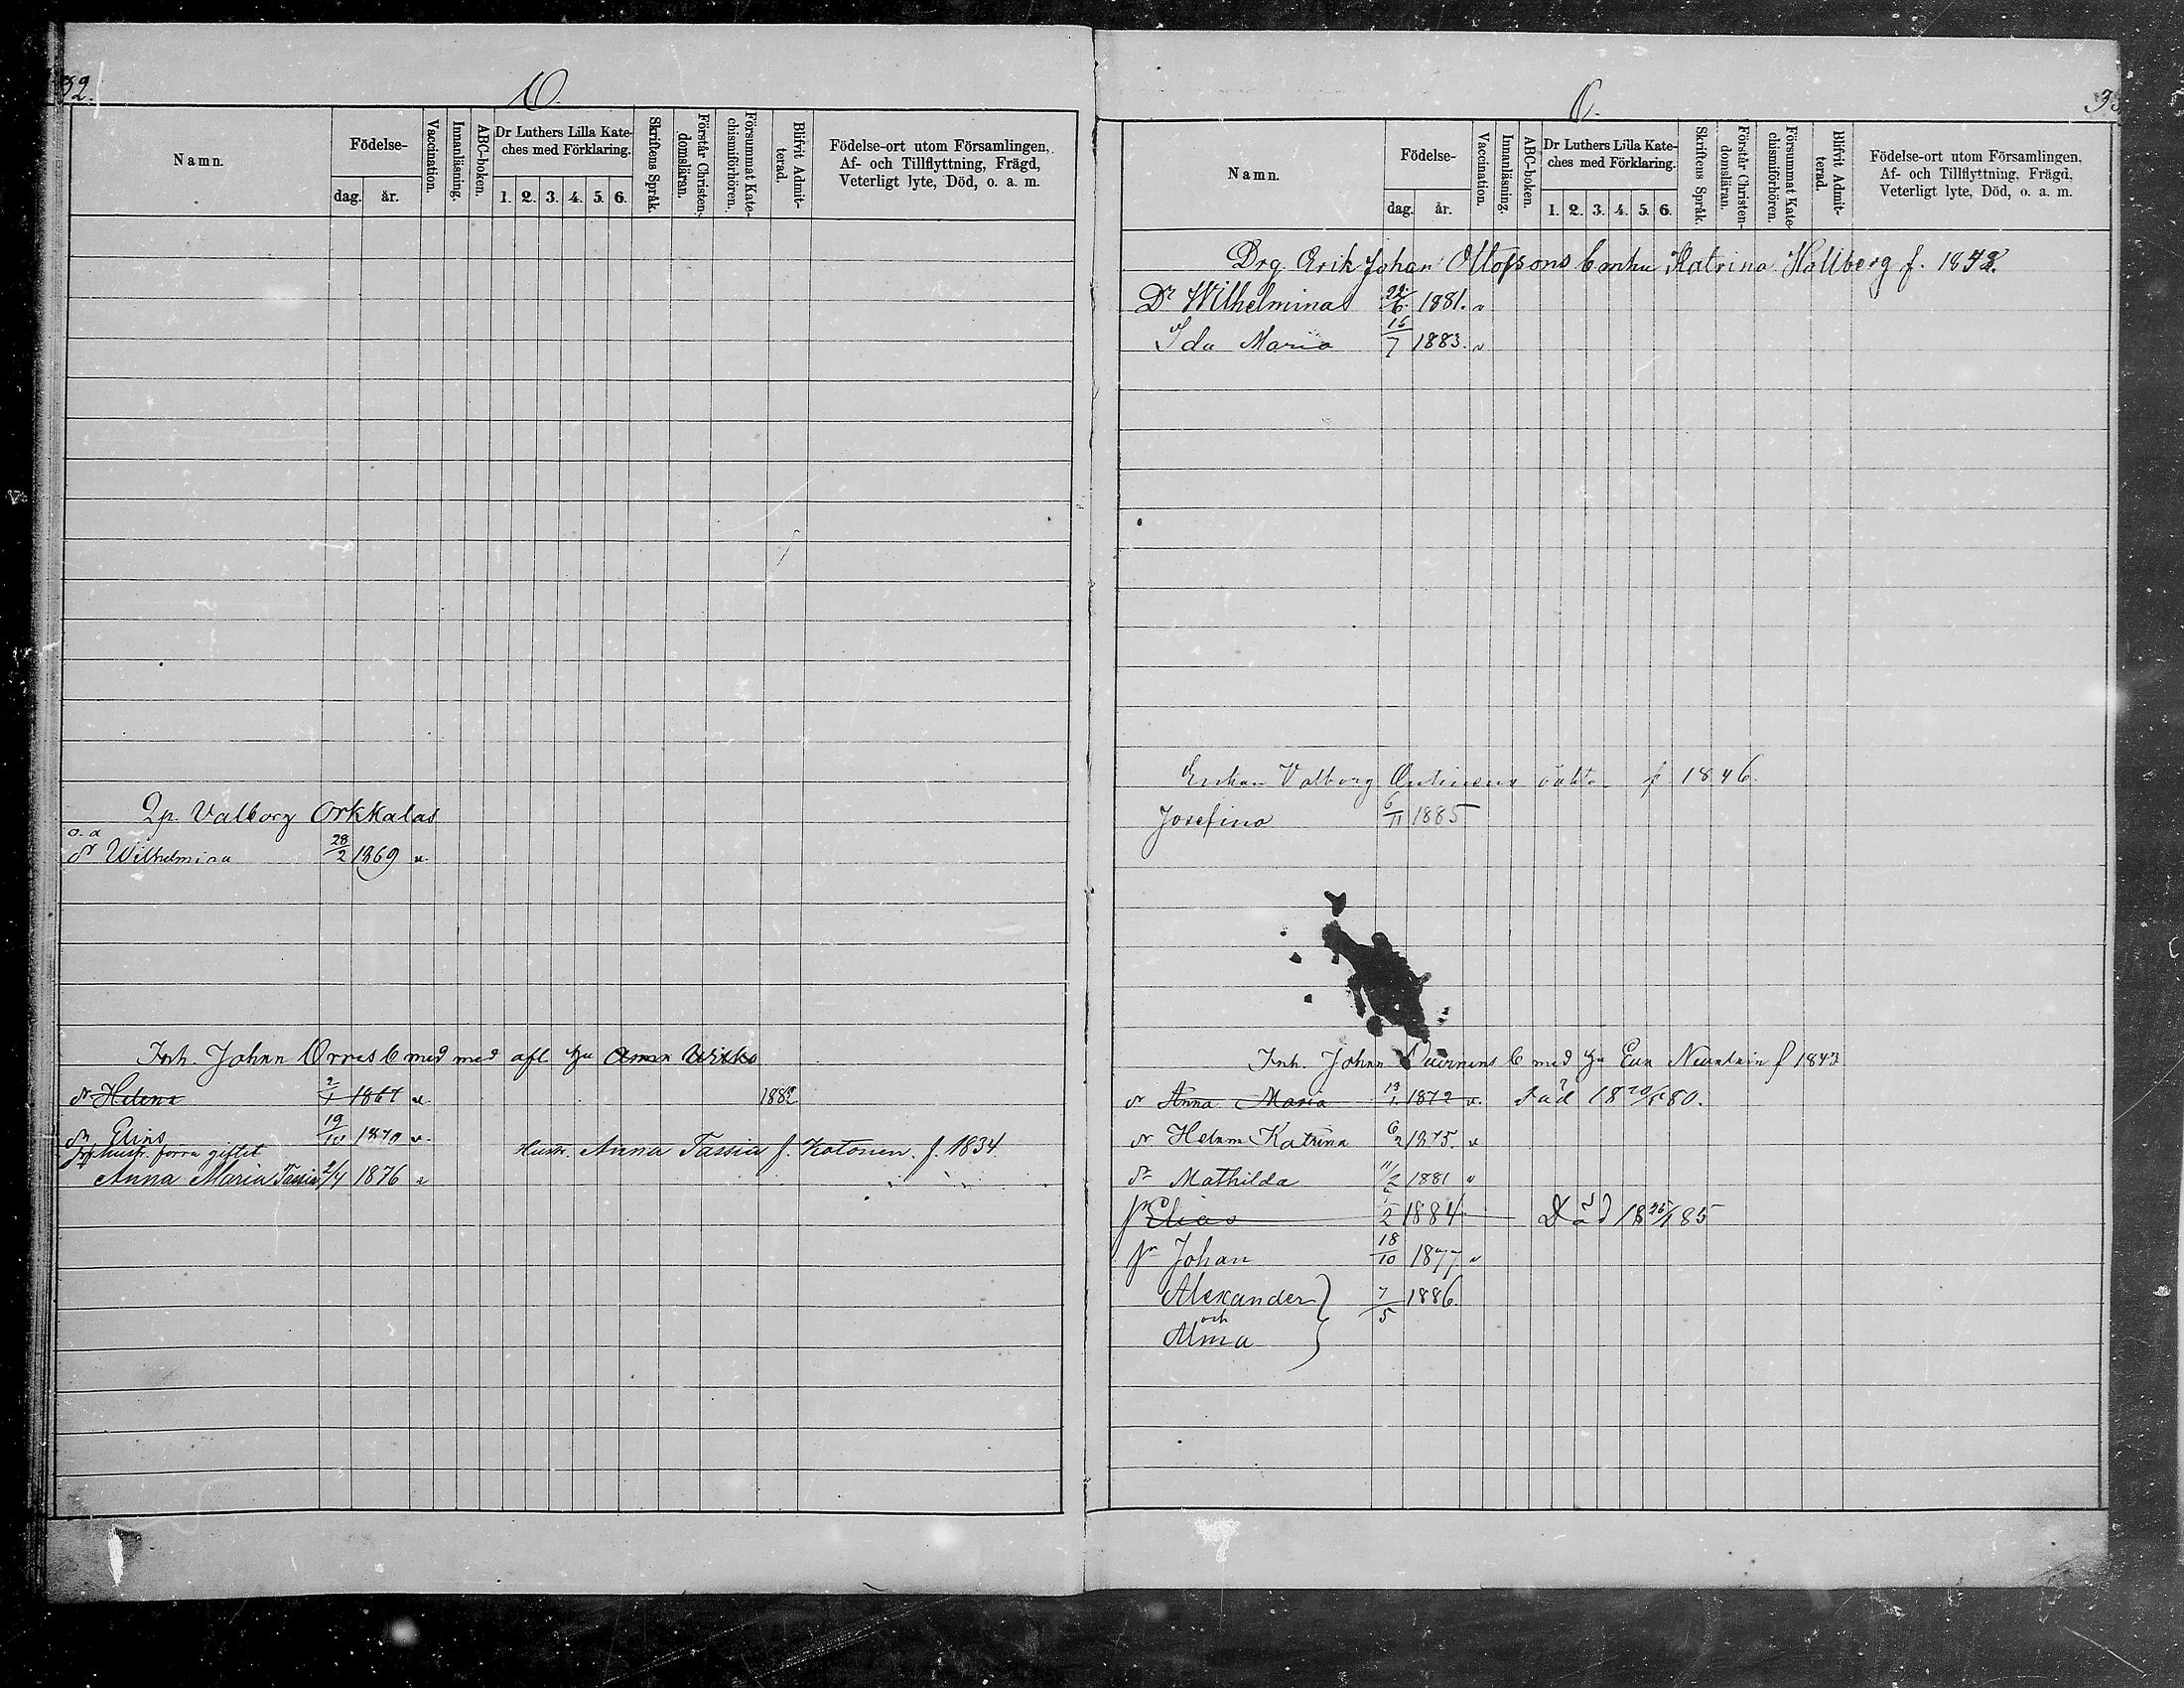 32.
O.
Namn.
Födelse-
dag.
år.
Vaccination.
Innanläsning.
ABC-boken.
Dr Luthers Lilla Kate-
ches med Förklaring.
1. 2. 3. 4. 5. 6.
Skriftens Språk.
Förstår Christen-
domsläran.
Försummat Kate-
chismiförhören.
Blifvit Admit-
terad.
Födelse-ort utom Församlingen,
Af- och Tillflyttning, Frägd,
Veterligt lyte, Död, o. a. m.
Valborg Orkkalas
o. a
dr Wilhelmina 28/2 1869 v.
Inh. Johan Ornes C med med afl hu Anna
dr Helena 2/1 1867 v 1882
Elias 19/10 1870 v.
hustr. förra giftet Hustr. Anna Tassia f. Kotonen. f. 1834
Anna Maria Tassia 2/4 1876 v
O.
33
Namn.
Födelse-
dag.
år.
Vaccination.
Innanläsning.
ABC-boken.
Dr Luthers Lilla Kate-
ches med Förklaring.
1. 2. 3. 4. 5. 6.
Skriftens Språk.
Förstår Christen-
domsläran.
Försummat Kate-
chismiförhören.
Blifvit Admit-
terad.
Födelse-ort utom Församlingen,
Af- och Tillflyttning, Frägd,
Veterligt lyte, Död, o. a. m.
Drg Erik Johan Ottofsons C enka Katrina Hallberg f. 1842.
Dr Wilhelmina 22/6 1881. v
Ida Maria 16/7 1883. v
Enkan Valborg f 1846.
Josefina 6/11 1885
Inh. Johan C med hu Eva f 1843
dr Anna Maria 13/1 1872 v. Död 18 20/5 80.
dr Helena Katrina 6/2 1875. v
dr Mathilda 11/2 1881 v
Elias 1/2 1884 Död 18 26/1 85
Johan 18/10 1877 v
Alexander 7/5 1886.
och
Alma